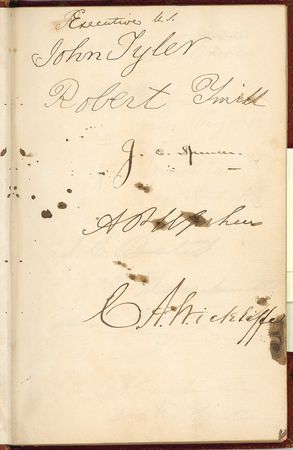 Executive U.S.
John Tyler
Robert Tyler
J. C. Spencer
A P Upshur
C A. Wickliffe